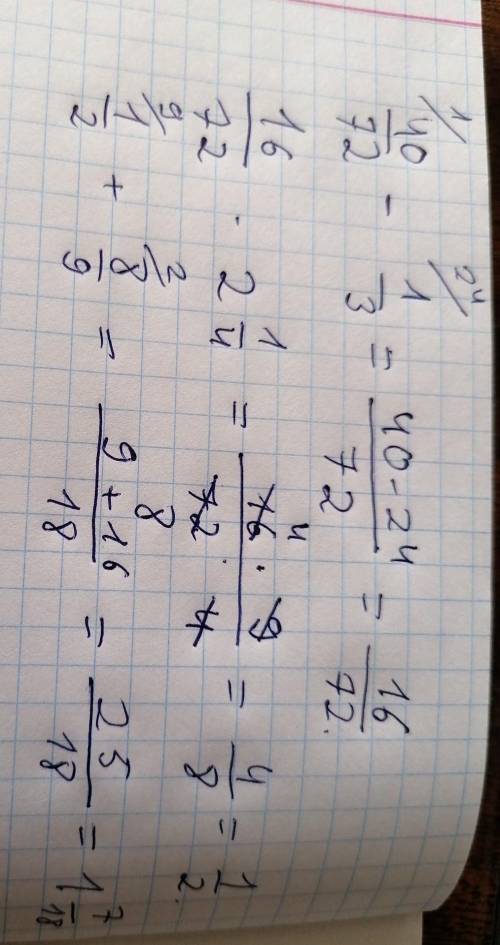 1/ 40/72 - 24/ 1/3 = (40-24)/72 = 16/72.
16/72 · 2 1/4 = (16 4 · 9)/(72 8 · 4) = 4/8 = 1/2.
9/ 1/2 + 2/ 8/9 = (9+16)/18 = 25/18 = 1 7/18